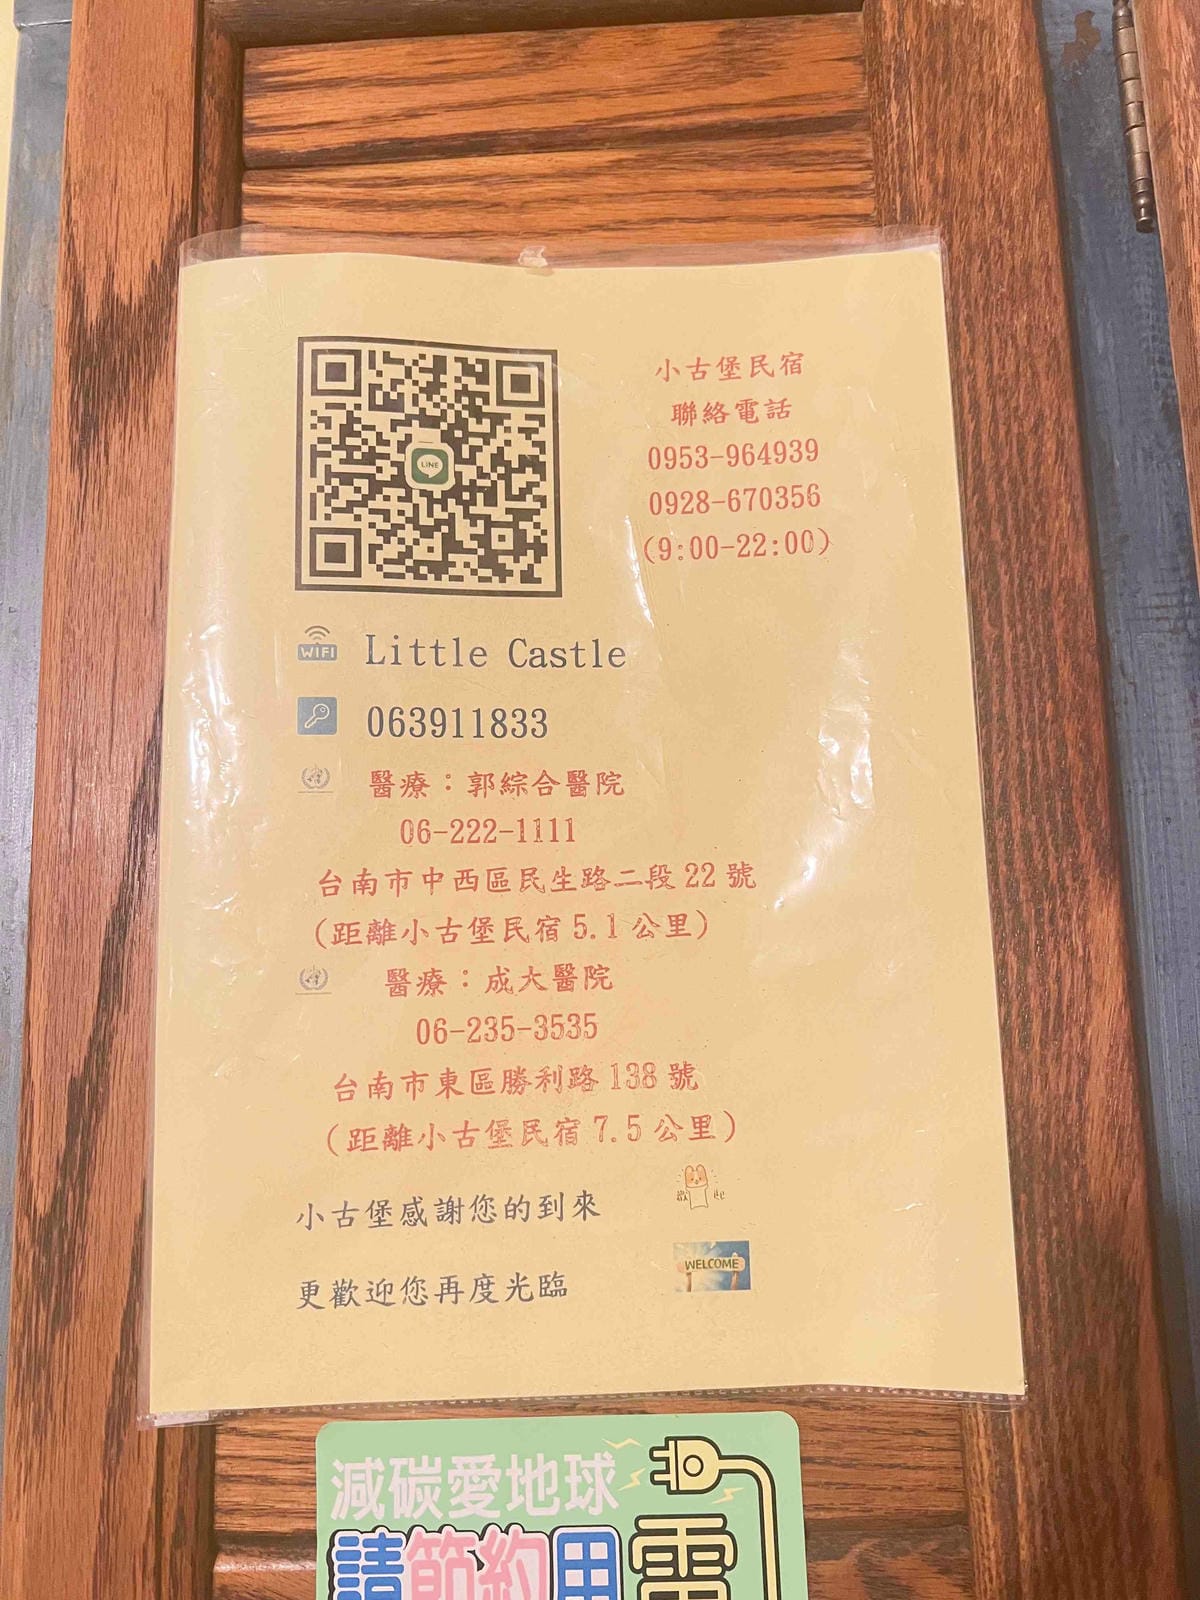 LINE
小古堡民宿
聯絡電話
0953-964939
0928-670356
(9:00-22:00)
WIFI Little Castle
063911833
醫療：郭綜合醫院
06-222-1111
台南市中西區民生路二段 22 號
(距離小古堡民宿 5.1 公里)
醫療：成大醫院
06-235-3535
台南市東區勝利路 138 號
(距離小古堡民宿 7.5 公里)
小古堡感謝您的到來
歡迎
更歡迎您再度光臨
WELCOME
減碳愛地球
請節約用電